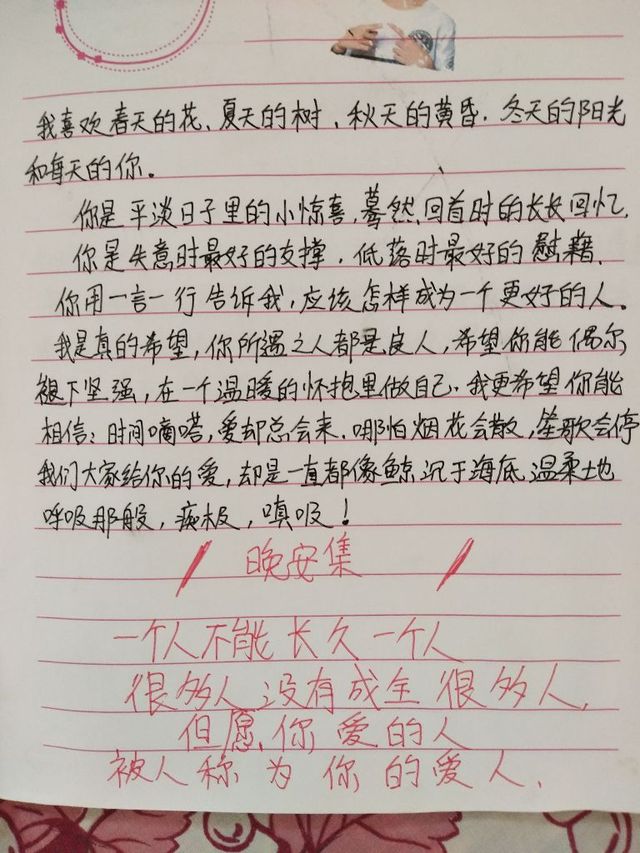 我喜欢春天的花、夏天的树、秋天的黄昏、冬天的阳光
和每天的你。
你是平淡日子里的小惊喜,蓦然回首时的长长回忆,
你是失意时最好的支撑,低落时最好的慰藉.
你用一言一行告诉我,应该怎样成为一个更好的人。
我是真的希望,你所遇之人都是良人,希望你能偶尔
褪下坚强,在一个温暖的怀抱里做自己.我更希望你能
相信:时间嘀嗒,爱却总会来.哪怕烟花会散,笙歌会停
我们大家给你的爱,却是一直都像鲸沉于海底温柔地
呼吸那般,痴极,嗔极!
晚安集
一个人不能长久一个人
很多人没有成全很多人,
但愿你爱的人
被人称为你的爱人.